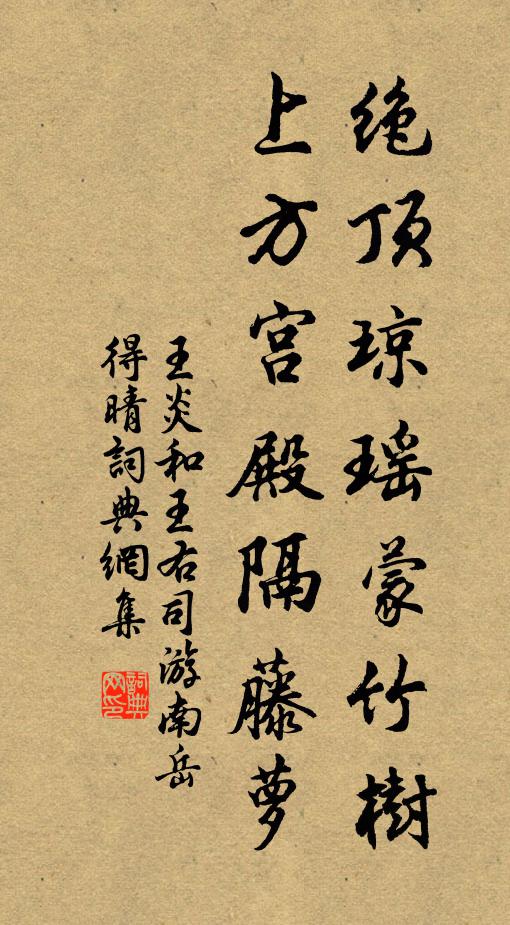 绝顶琼瑶蒙竹樹
上方宫殿隔藤萝
王炎和王右司游南岳
得晴詞典網集
詞典
网印